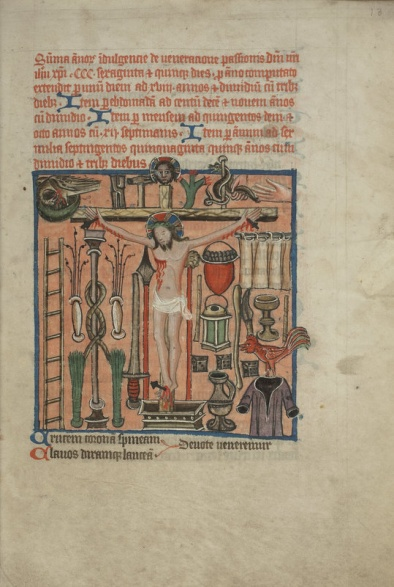 Su͞ma annoꝝ idulgencie de veneracione passionis
xpi · CCC · sexaginta ⁊ quinqȝ dies · p anno computato
extendit p unum diem ad xviii · annos ⁊ dimidiu͞ cu͞ tribȝ
diebȝ · Item p ebdomadā ad centu͞ dece͞ ⁊ novem annos
cu͞ dimidio · Item p mensem ad quingentos
octo annos cu͞ · xi · septimanis · Item p annu͞ ad sex
milia septingentos quinquaginta quinqȝ annos cu͞
dimidio ⁊ tribȝ diebus
Crucem coronā spineam
Clavos diramqȝ lanceā
Devote veneremur